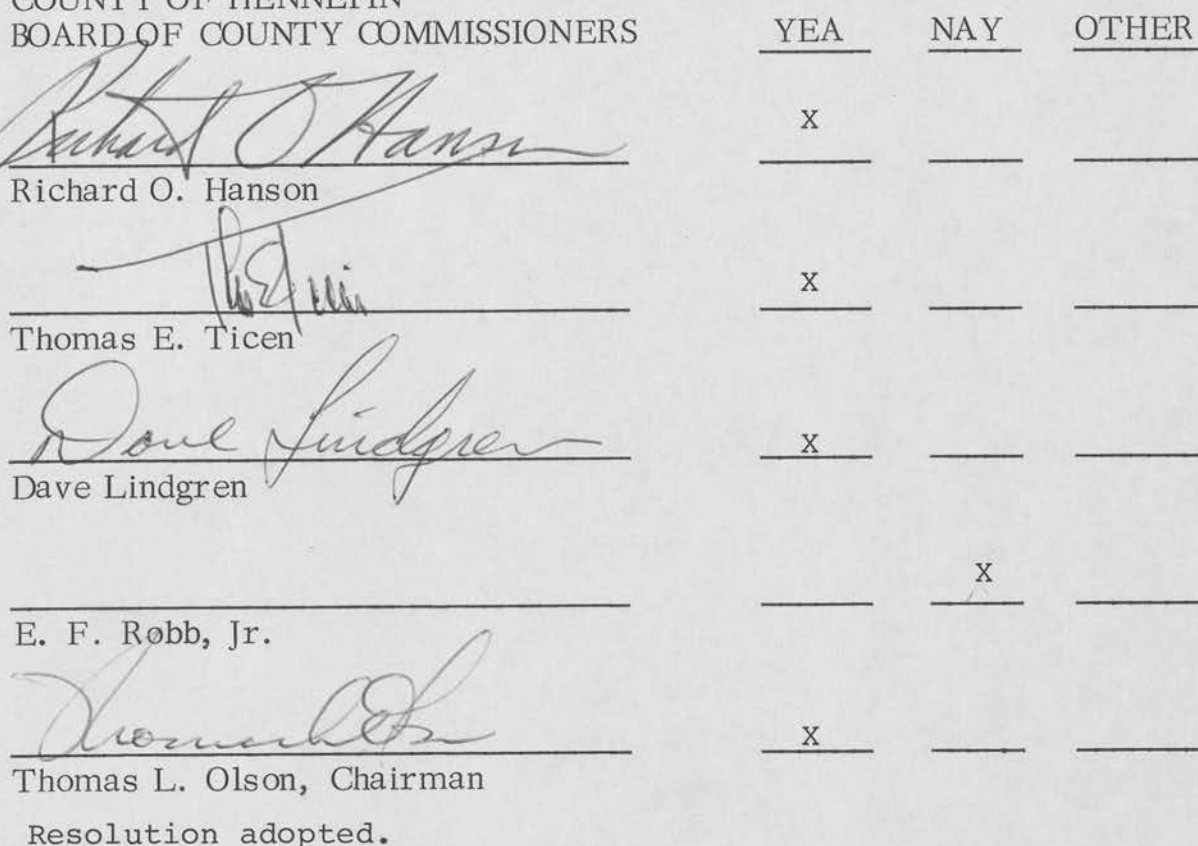 COUNTY OF HENNEPIN
BOARD OF COUNTY COMMISSIONERS YEA NAY OTHER
Richard O Hanson X
Richard O. Hanson
X
Thomas E. Ticen
Dave Lindgren X
Dave Lindgren
X
E. F. Robb, Jr.
X
Thomas L. Olson, Chairman
Resolution adopted.